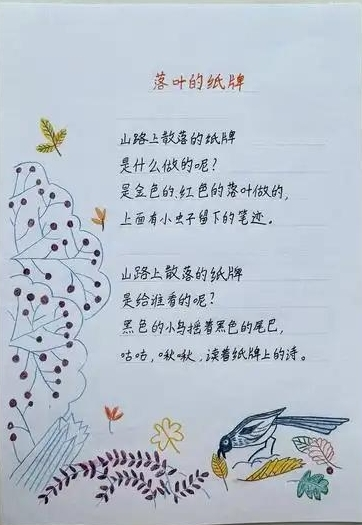 落叶的纸牌
山路上散落的纸牌
是什么做的呢?
是金色的、红色的落叶做的,
上面有小虫子留下的笔迹。
山路上散落的纸牌
是给谁看的呢?
黑色的小鸟摇着黑色的尾巴,
咕咕,啾啾,读着纸牌上的诗。